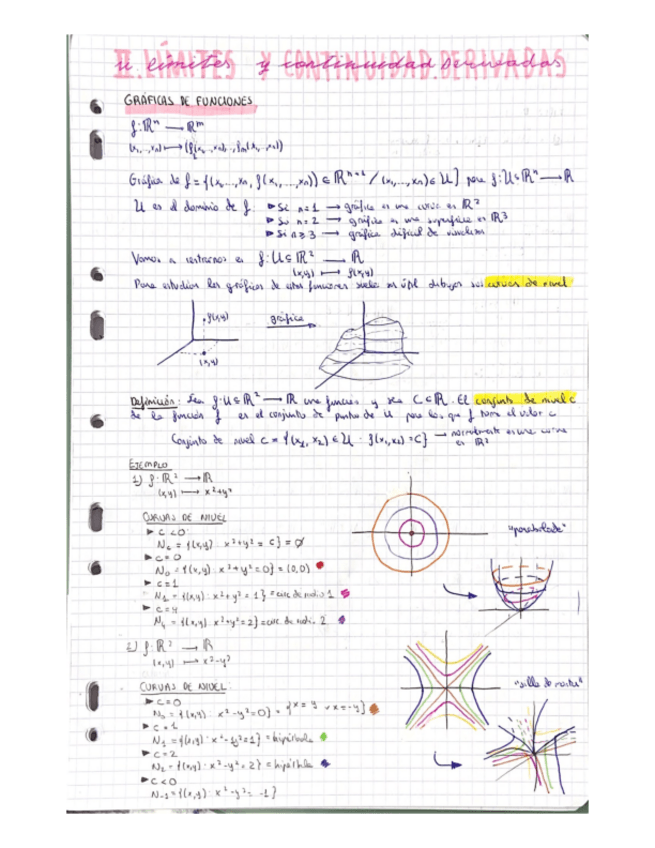 II. LÍMITES y CONTINUIDAD. DERIVADAS
GRÁFICAS DE FUNCIONES
f: ℝⁿ → ℝᵐ
(x₁,...,xₙ) ↦ (f₁(x₁,...,xₙ),...,fₘ(x₁,...,xₙ))
Gráfica de f = {(x₁,...,xₙ, f(x₁,...,xₙ)) ∈ ℝⁿ⁺¹ / (x₁,...,xₙ) ∈ U} para f: U⊆ℝⁿ → ℝ
U es el dominio de f. ▶ Si n=1 → gráfica es una curva en ℝ²
▶ Si n=2 → gráfica es una superficie en ℝ³
▶ Si n≥3 → gráfica difícil de visualizar
Vamos a centrarnos en f: U⊆ℝ² → ℝ
(x,y) ↦ f(x,y)
Para estudiar las gráficas de estas funciones suele ser útil dibujar sus curvas de nivel
f(x,y)
gráfica
(x,y)
Definición: Sea f: U⊆ℝ² → ℝ una función y sea C∈ℝ. El conjunto de nivel c
de la función f es el conjunto de puntos de U para los que f toma el valor c
Conjunto de nivel c = {(x₁, x₂) ∈ U : f(x₁,x₂) = C} → normalmente es una curva
en ℝ²
EJEMPLO
1) f: ℝ² → ℝ
(x,y) ↦ x²+y²
CURVAS DE NIVEL
▶ c<0
N_c = {(x,y): x²+y² = c} = ∅
▶ c=0
N₀ = {(x,y): x²+y²=0} = (0,0)
▶ c=1
N₁ = {(x,y): x²+y²=1} = circ de radio 1
▶ c=4
N₄ = {(x,y): x²+y²=2} = circ. de radio 2
"paraboloide"
2) f: ℝ² → ℝ
(x,y) ↦ x²-y²
CURVAS DE NIVEL:
▶ c=0
N₀ = {(x,y): x²-y²=0} = {x=y v x=-y}
▶ c=1
N₁ = {(x,y): x²-y²=1} = hipérbola
▶ c=2
N₂ = {(x,y): x²-y²=2} = hipérbola
▶ c<0
N₋₁ = {(x,y): x²-y²=-1}
"silla de montar"